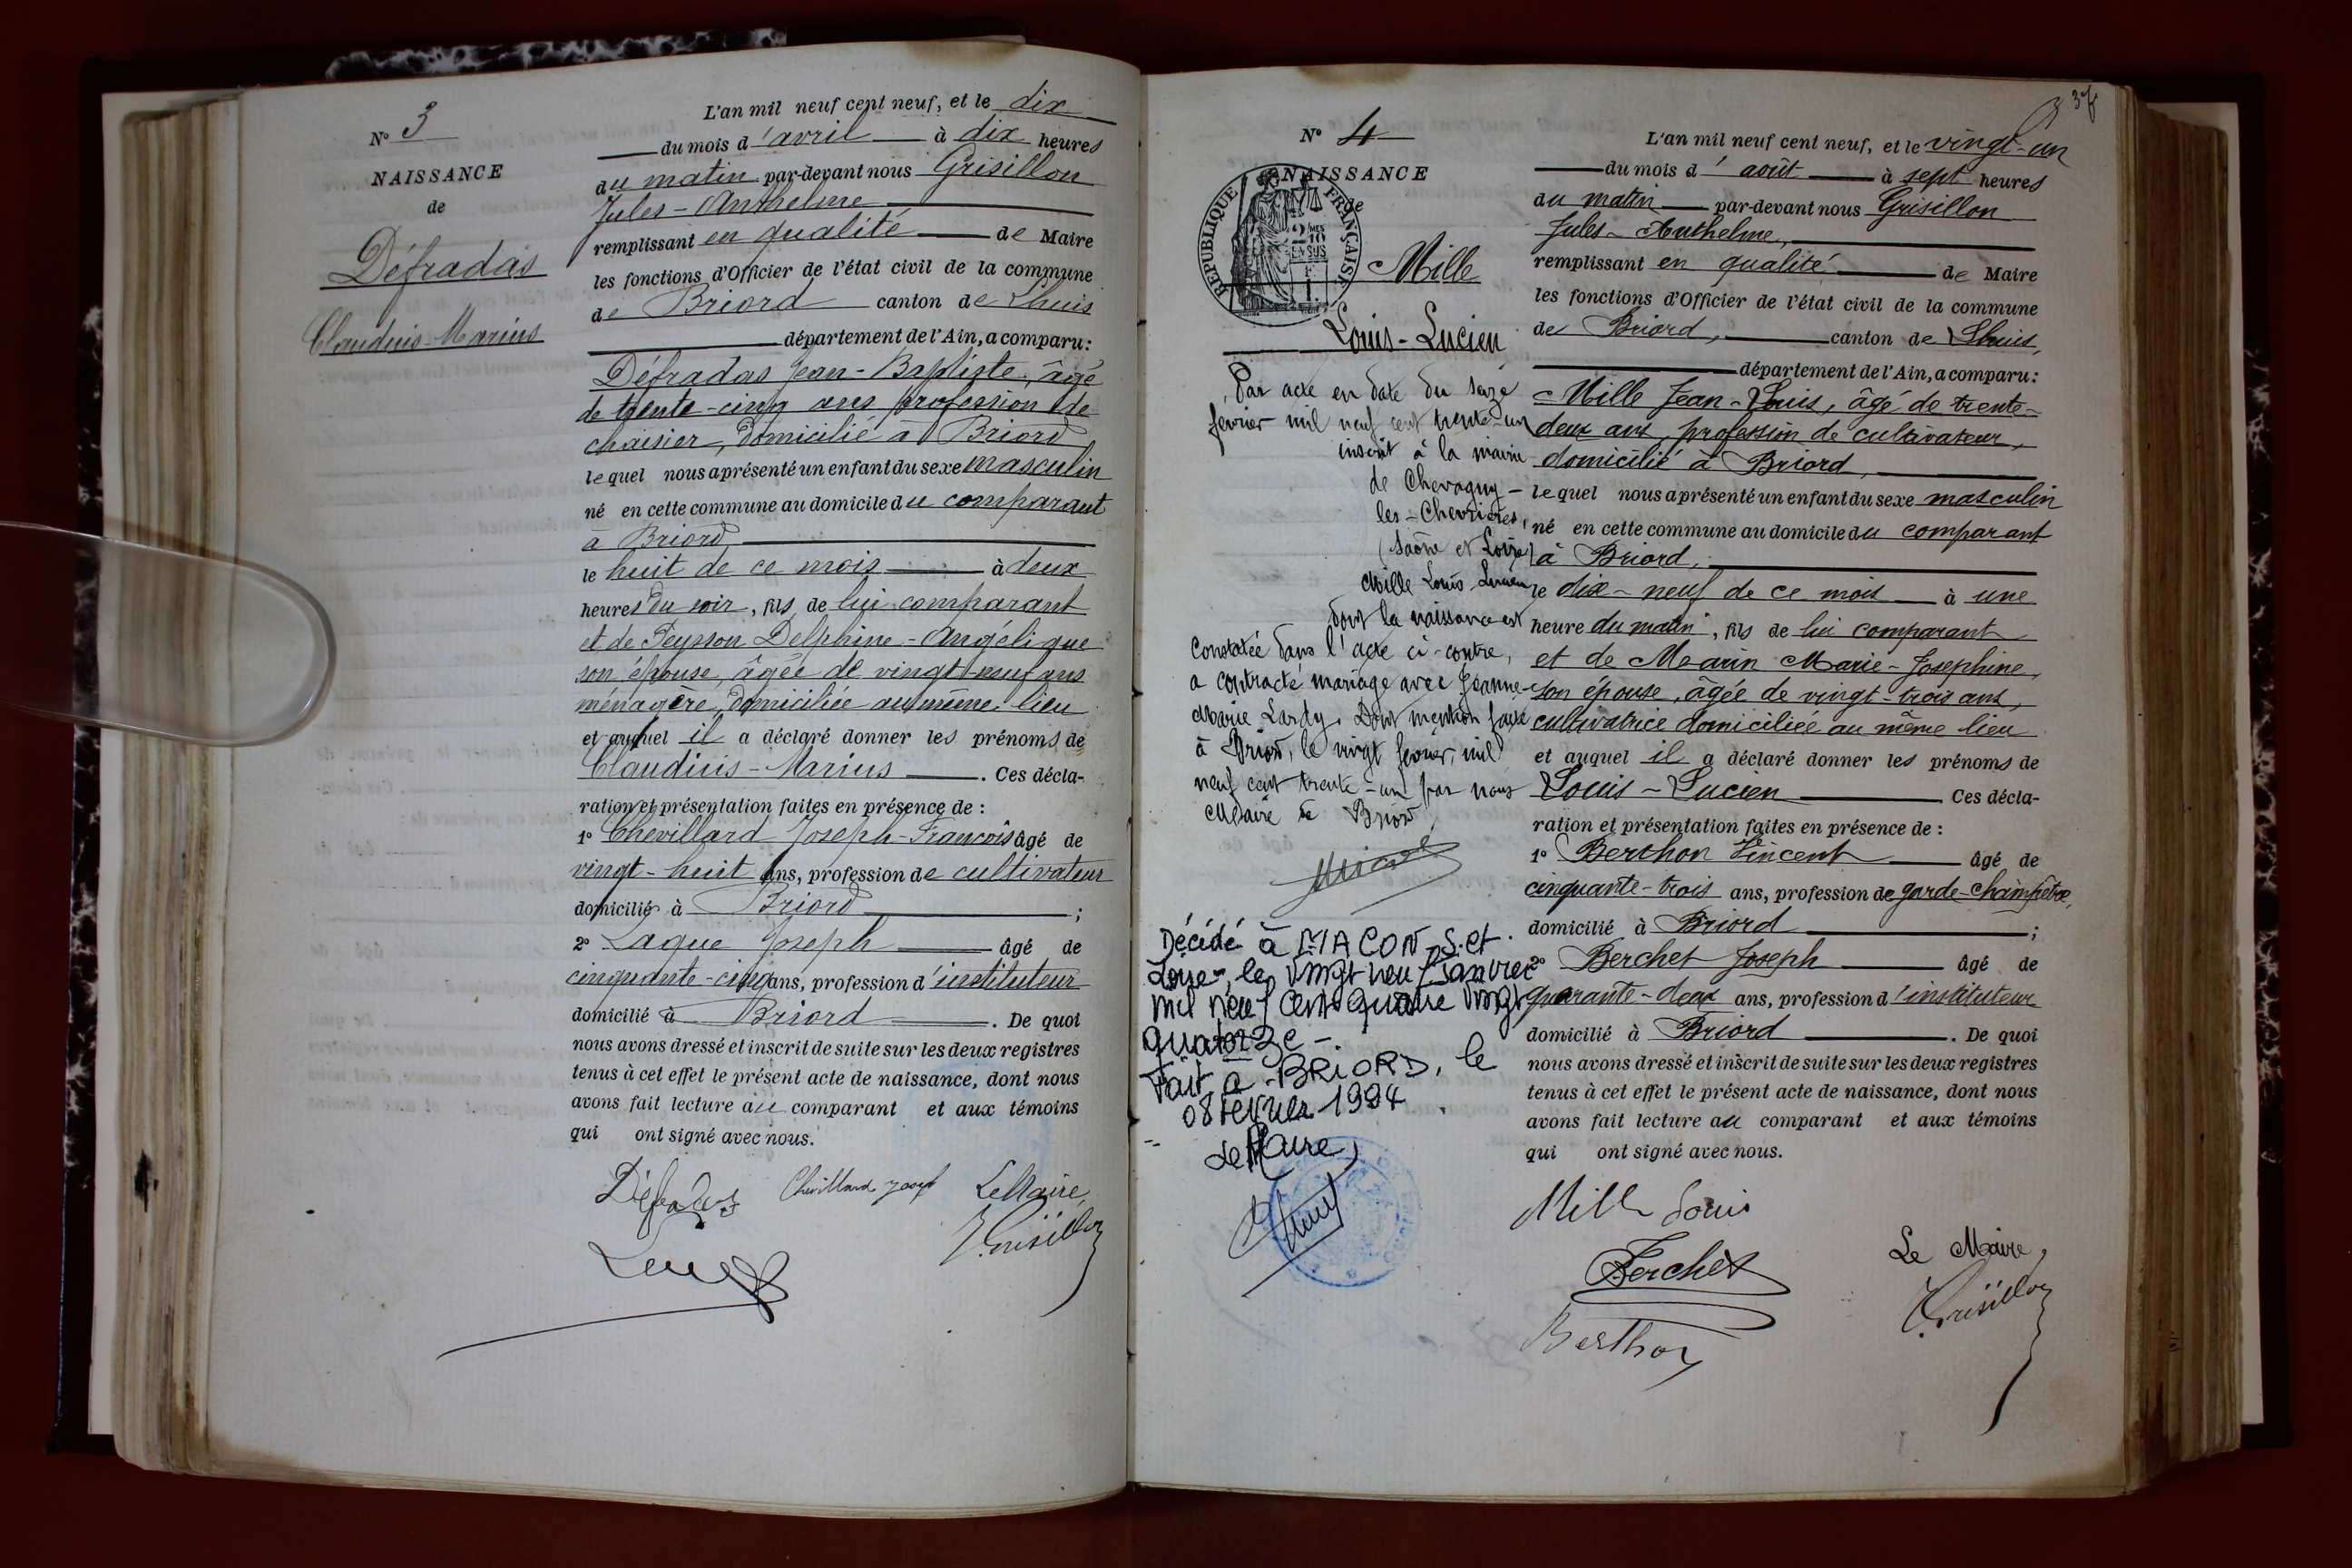 N° 3
NAISSANCE
de
Défradas
Claudius-Marius
L'an mil neuf cent neuf, et le dix
du mois d'avril à dix heures
du matin par-devant nous Grisillon
Jules-Anthelme
remplissant en qualité de Maire
les fonctions d'Officier de l'état civil de la commune
de Briord canton de Lhuis
département de l'Ain, a comparu:
Défradas Jean-Baptiste, âgé
de trente-cinq ans profession de
chaisier, domicilié à Briord
lequel nous a présenté un enfant du sexe masculin
né en cette commune au domicile du comparant
à Briord
le huit de ce mois à deux
heures du soir, fils de lui comparant
et de Peysson Delphine-Angélique
son épouse, âgée de vingt-neuf ans
ménagère, domiciliée au même lieu
et auquel il a déclaré donner les prénoms de
Claudius-Marius. Ces décla-
ration et présentation faites en présence de :
1° Chevillard Joseph-François âgé de
vingt-huit ans, profession de cultivateur
domicilié à Briord ;
2° Laque Joseph âgé de
cinquante-cinq ans, profession d'instituteur
domicilié à Briord. De quoi
nous avons dressé et inscrit de suite sur les deux registres
tenus à cet effet le présent acte de naissance, dont nous
avons fait lecture au comparant et aux témoins
qui ont signé avec nous.
Défradas Chevillard Joseph Le Maire,
J. Grisillon
37
N° 4
NAISSANCE
de
RÉPUBLIQUE FRANÇAISE
2/10 EN SUS
Mille
Louis-Lucien
Par acte en date du seize
février mil neuf cent trente-un
inscrit à la mairie
de Chevagny-
les-Chevrières,
(Saône et Loire)
Mille Louis-Lucien
dont la naissance est
constatée dans l'acte ci-contre,
a contracté mariage avec Jeanne-
Marie Lardy. Dont mention faite
à Briord, le vingt février, mil
neuf cent trente-un par nous
Maire de Briord.
Décédé à MACON, S. et
Loire-, le vingt neuf Janvier
mil neuf cent quatre vingt
quatorze-.
Fait à BRIORD, le
08 février 1994
Le Maire,
L'an mil neuf cent neuf, et le vingt-un
du mois d'août à sept heures
du matin par-devant nous Grisillon
Jules-Anthelme,
remplissant en qualité de Maire
les fonctions d'Officier de l'état civil de la commune
de Briord, canton de Lhuis,
département de l'Ain, a comparu:
Mille Jean-Louis, âgé de trente-
deux ans, profession de cultivateur,
domicilié à Briord,
lequel nous a présenté un enfant du sexe masculin
né en cette commune au domicile du comparant
à Briord,
le dix-neuf de ce mois à une
heure du matin, fils de lui comparant
et de Marin Marie-Joséphine,
son épouse, âgée de vingt-trois ans,
cultivatrice domiciliée au même lieu
et auquel il a déclaré donner les prénoms de
Louis-Lucien. Ces décla-
ration et présentation faites en présence de :
1° Berthon Vincent âgé de
cinquante-trois ans, profession de garde-champêtre,
domicilié à Briord ;
2° Berchet Joseph âgé de
quarante-deux ans, profession d'instituteur
domicilié à Briord. De quoi
nous avons dressé et inscrit de suite sur les deux registres
tenus à cet effet le présent acte de naissance, dont nous
avons fait lecture au comparant et aux témoins
qui ont signé avec nous.
Mille Louis
Berchet
Le Maire,
J. Grisillon
Berthon